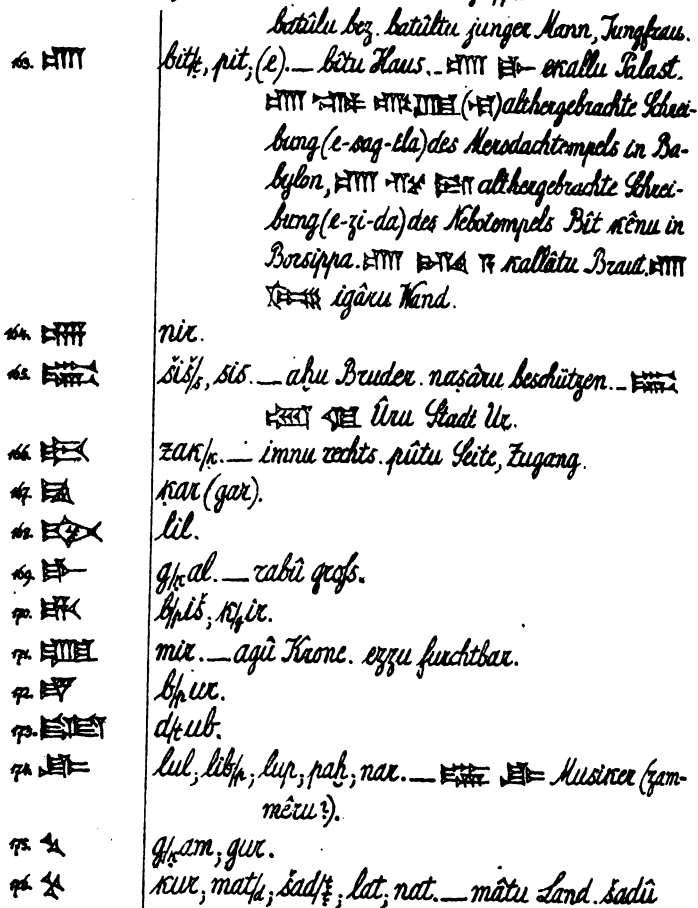 batûlu bez. batûltu junger Mann, Jungfrau.
163. 𒂍 bit/ṭ, pit, (e). — bîtu Haus. — 𒂍 𒃲 ekallu Palast.
𒂍 𒊕 𒅍 𒆷 althergebrachte Schrei-
bung (e-sag-ila) des Merodachtempels in Ba-
bylon, 𒂍 𒍣 𒁕 althergebrachte Schrei-
bung (e-zi-da) des Nebotempels Bît kênu in
Borsippa. 𒂍 𒄀 𒀀 kallâtu Braut. 𒂍
𒋞 igâru Wand.
164. 𒉪 nir.
165. 𒋀 šiš/s, sis. — aḫu Bruder. naṣâru beschützen. — 𒋀
𒀕 𒆠 Ûru Stadt Ur.
166. 𒍠 zak/ḳ. — imnu rechts. pûtu Seite, Zugang.
167. 𒃼 ḳar (gar).
168. 𒆤 lil.
169. 𒃲 g/ḳal. — rabû groß.
170. 𒄫 b/piš; k/qir.
171. 𒂆 mir. — agû Krone. ezzu furchtbar.
172. 𒁓 b/pur.
173. 𒁾 d/ṭub.
174. 𒈜 lul; lib/p; lup; paḫ; nar. — 𒇽 𒈜 Musiker (zam-
mêru?).
175. 𒃵 g/ḳam; gur.
176. 𒆳 kur; mat/d; šad/ṭ; lat; nat. — mâtu Land. šadû